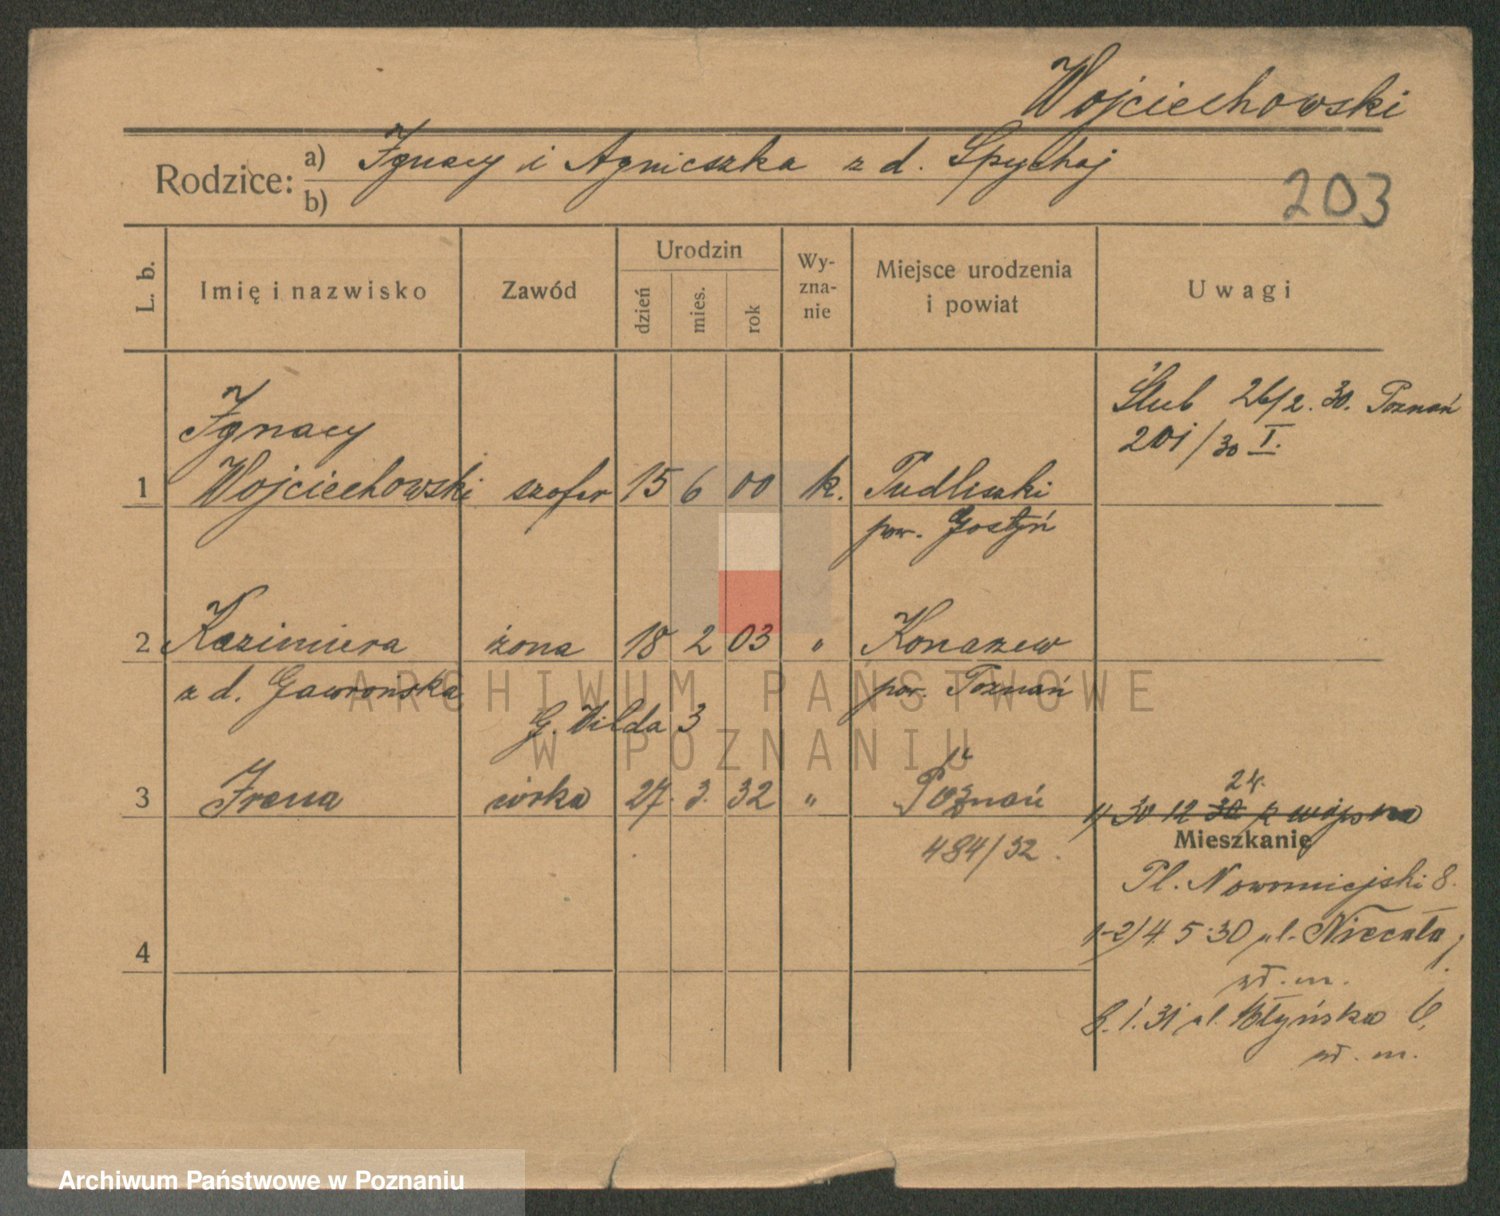 Wojciechowski
Rodzice: a) Ignacy i Agnieszka z d. Spychaj
b)
203
L. b.
Imię i nazwisko
Zawód
Urodzin
dzień
mies.
rok
Wy-
zna-
nie
Miejsce urodzenia
i powiat
Uwagi
Ślub 26/2. 30. Poznań
201/30 I.
Ignacy
1 Wojciechowski szofer 15 6 00 k. Pudliszki
pow. Gostyń
2 Kazimiera żona 18 2 03 " Konarzew
z d. Gawrońska pow. Poznań
G. Wilda 3
3 Irena córka 27. 3. 32 " Poznań
484/32.
24.
30 12 30
Mieszkanie
Pl. Nowomiejski 8.
1-2/4. 5. 30 ul. Niecała
wł. m.
4
8. 1. 31 ul. 6,
wł. m.
ARCHIWUM PAŃSTWOWE
W POZNANIU
Archiwum Państwowe w Poznaniu